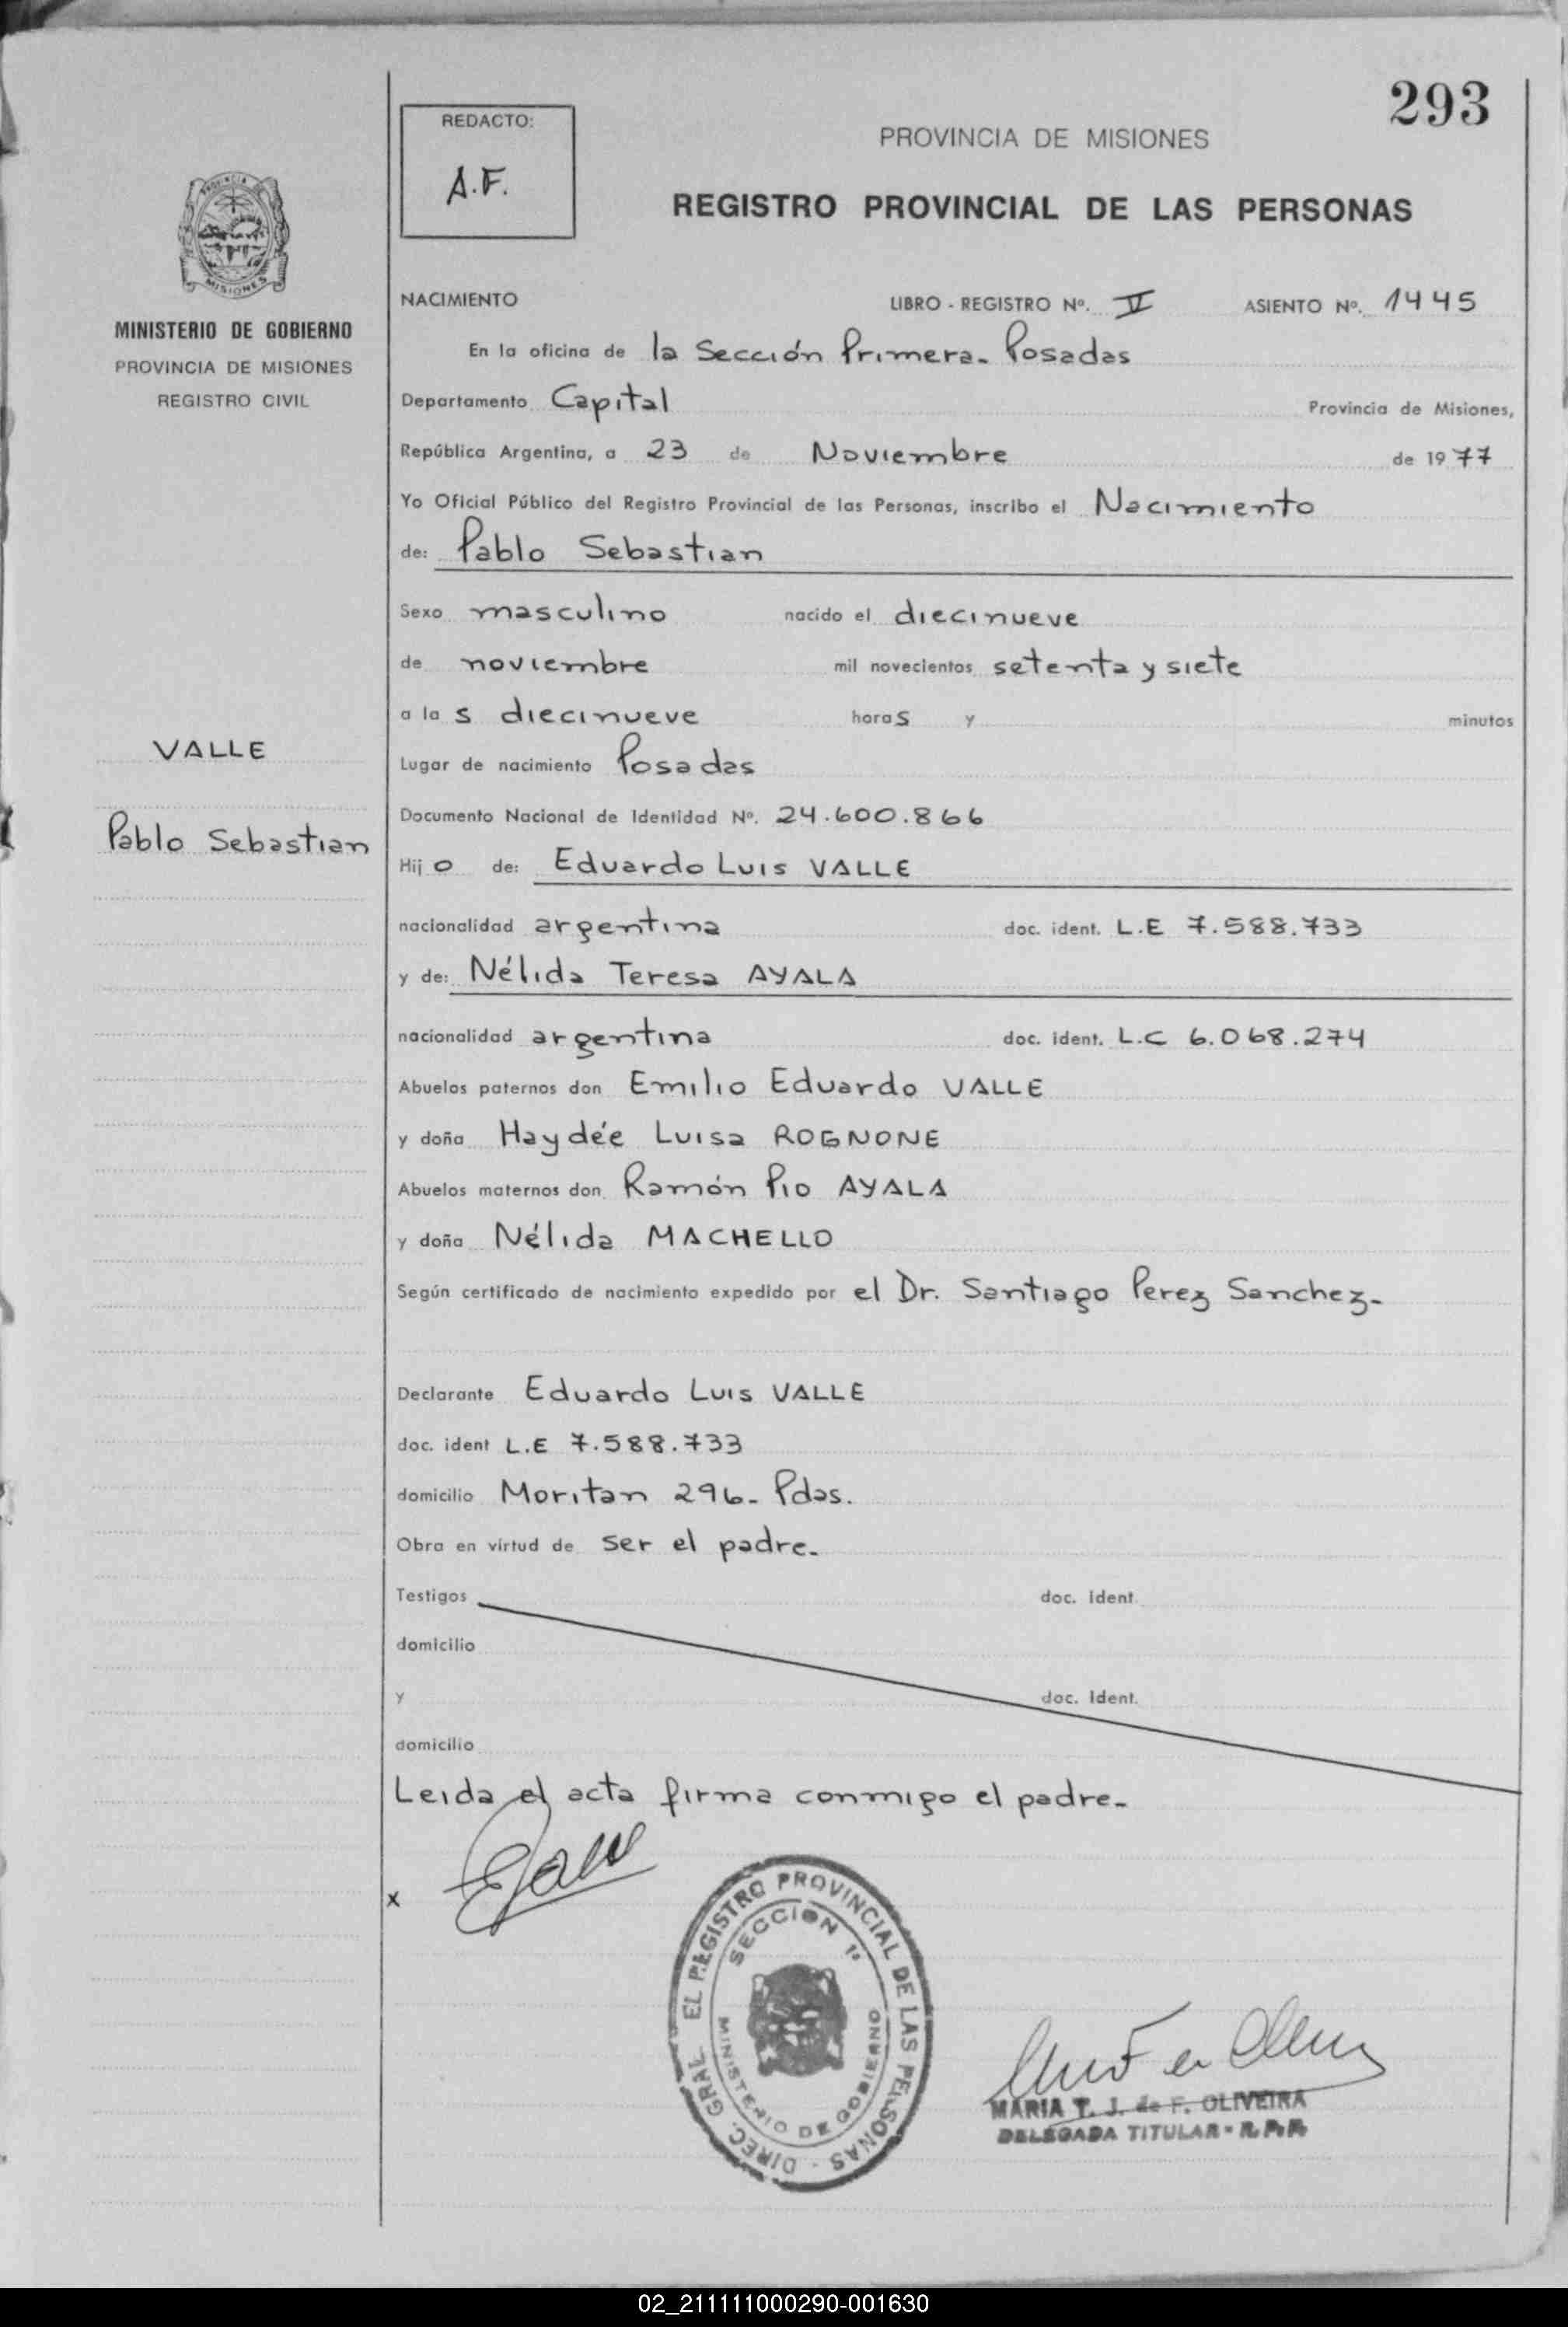 293
REDACTO:
A.F.
PROVINCIA DE MISIONES
REGISTRO PROVINCIAL DE LAS PERSONAS
PROVINCIA DE
MISIONES
MINISTERIO DE GOBIERNO
PROVINCIA DE MISIONES
REGISTRO CIVIL
VALLE
Pablo Sebastian
NACIMIENTO LIBRO - REGISTRO Nº. IV ASIENTO Nº. 1445
En la oficina de la Sección Primera. Posadas
Departamento Capital Provincia de Misiones,
República Argentina, a 23 de Noviembre de 1977
Yo Oficial Público del Registro Provincial de las Personas, inscribo el Nacimiento
de: Pablo Sebastian
Sexo masculino nacido el diecinueve
de noviembre mil novecientos setenta y siete
a las diecinueve horas y minutos
Lugar de nacimiento Posadas
Documento Nacional de Identidad Nº. 24.600.866
Hijo de: Eduardo Luis VALLE
nacionalidad argentina doc. ident. L.E 7.588.733
y de: Nélida Teresa AYALA
nacionalidad argentina doc. ident. L.C 6.068.274
Abuelos paternos don Emilio Eduardo VALLE
y doña Haydée Luisa ROGNONE
Abuelos maternos don Ramón Pio AYALA
y doña Nélida MACHELLO
Según certificado de nacimiento expedido por el Dr. Santiago Perez Sanchez-
Declarante Eduardo Luis VALLE
doc. ident L.E 7.588.733
domicilio Moritan 296- Pdas.
Obra en virtud de ser el padre-
Testigos doc. ident.
domicilio
y doc. ident.
domicilio
Leida el acta firma conmigo el padre-
x
DIREC. GRAL. EL REGISTRO PROVINCIAL DE LAS PERSONAS -
SECCION 1ª
MINISTERIO DE GOBIERNO
MARIA T. J. de F. OLIVEIRA
DELEGADA TITULAR - R.P.P.
02_211111000290-001630